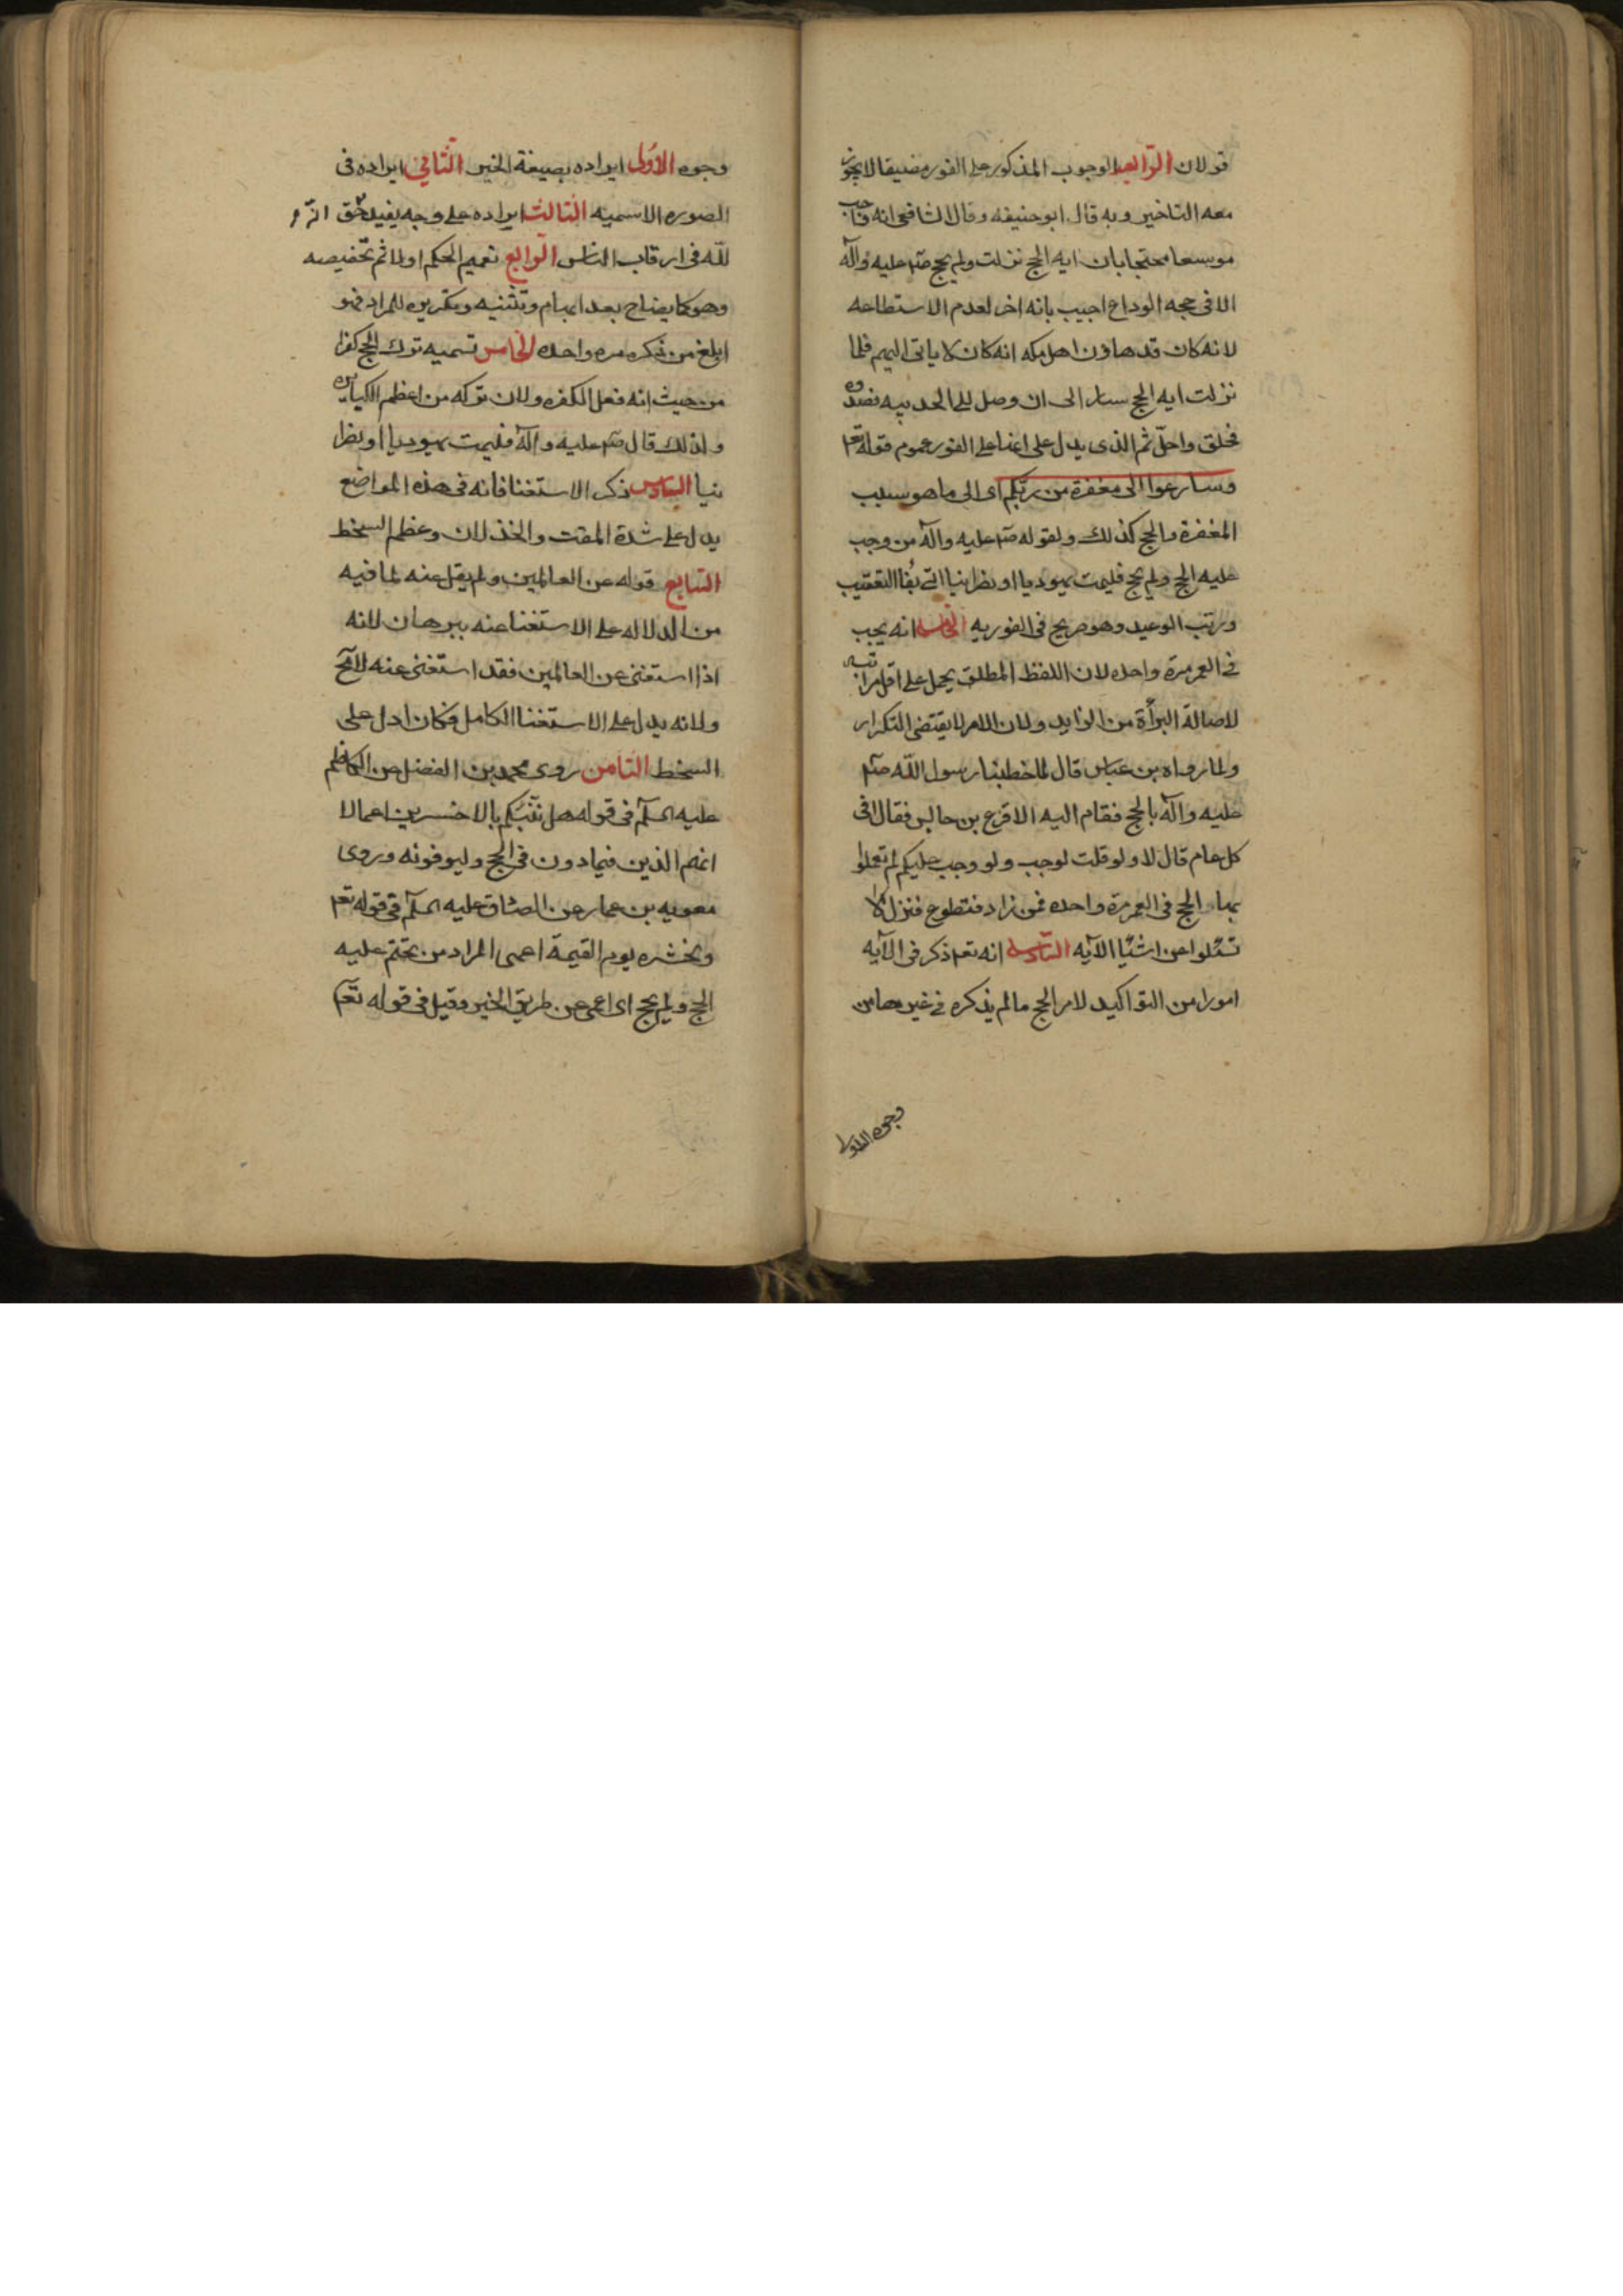 قولان الرابعه الوجوب المذكور على الفور مضيقا لا يجوز
معه التاخير وبه قال ابو حنيفه وقال الشافعى انه واجب
موسعا محتجا بان ايه الحج نزلت ولم يحج صلم عليه وآله
الا فى حجه الوداع اجيب بانه اخر لعدم الاستطاعه
لانه كان قد هادن اهل مكه انه كان لا ياتى اليهم فلما
نزلت ايه الحج سار الى ان وصل الى الحديبيه فصدوه
فحلق واحلّ ثم الذى يدل على انها على الفور عموم قوله تعم
وسارعوا الى مغفرة من ربّكم اى الى ما هو سبب
المغفرة والحج كذلك ولقوله صلم عليه وآله من وجب
عليه الحج ولم يحج فليمت يهوديا او نصرانيا اتى بفا التعقيب
ورتب الوعيد وهو صريح فى الفوريه الخامسه انه يجب
فى العمر مرة واحده لان اللفظ المطلق يحمل على اقل مراتبه
لاصالة البرأة من الزايد ولان الامر لا يقتضى التكرار
ولما رواه بن عباس قال لما خطبنا رسول اللّه صلم
عليه وآله بالحج فقام اليه الاقرع بن حابس فقال افى
كل عام قال لا ولو قلت لوجب ولو وجب عليكم لم تعملوا
بها الحج فى العمر مرة واحده فمن زاد فتطوع فنزل لا
تسئلوا عن اشيٓا الآيه السّادسه انه تعم ذكر فى الآيه
امورا من التواكيد لامر الحج ما لم يذكره فى غيرها من
وجوه الاول
وجوه الاوّل ايراده بصيغة الخبر الثّانى ايراده فى
الصوره الاسميه الثالث ايراده على وجه يفيد حّق
للّه فى رقاب الناس الرّابع تعميم الحكم اولا ثم تخصيصه
وهو كايضاح بعد ابهام وتثنيه وتكرير للمراد فهو
ابلغ من ذكره مره واحده الخامس تسميه ترك الحج كفرا
من حيث انه فعل الكفره ولان تركه من اعظم الكبائر
ولذلك قال صلم عليه وآله فليمت يهوديا او نصرا
نيا السّادس ذكر الاستغنا فانه فى هذه المواضع
يدل على شدة المقت والخذلان وعظم السخط
السّابع قوله عن العالمين ولم يقل عنه لما فيه
من الدلاله على الاستغنا عنه ببرهان لانه
اذا استغنى عن العالمين فقد استغنى عنه لا مح
ولانه يدل على الاستغنا الكامل فكان ادل على
السخط الثامن روى محمد بن الفضل عن الكاظم
عليه السلم فى قوله هل ننبّئكم بالاخسرين اعمالا
انهم الذين يتمادون فى الحج ويسوفونه وروى
معويه بن عمار عن الصادق عليه السلم فى قوله تعم
ونحشره يوم القيمة اعمى المراد من تحتم عليه
الحج ولم يحج اى اعمى عن طريق الخير وقيل فى قوله تعم